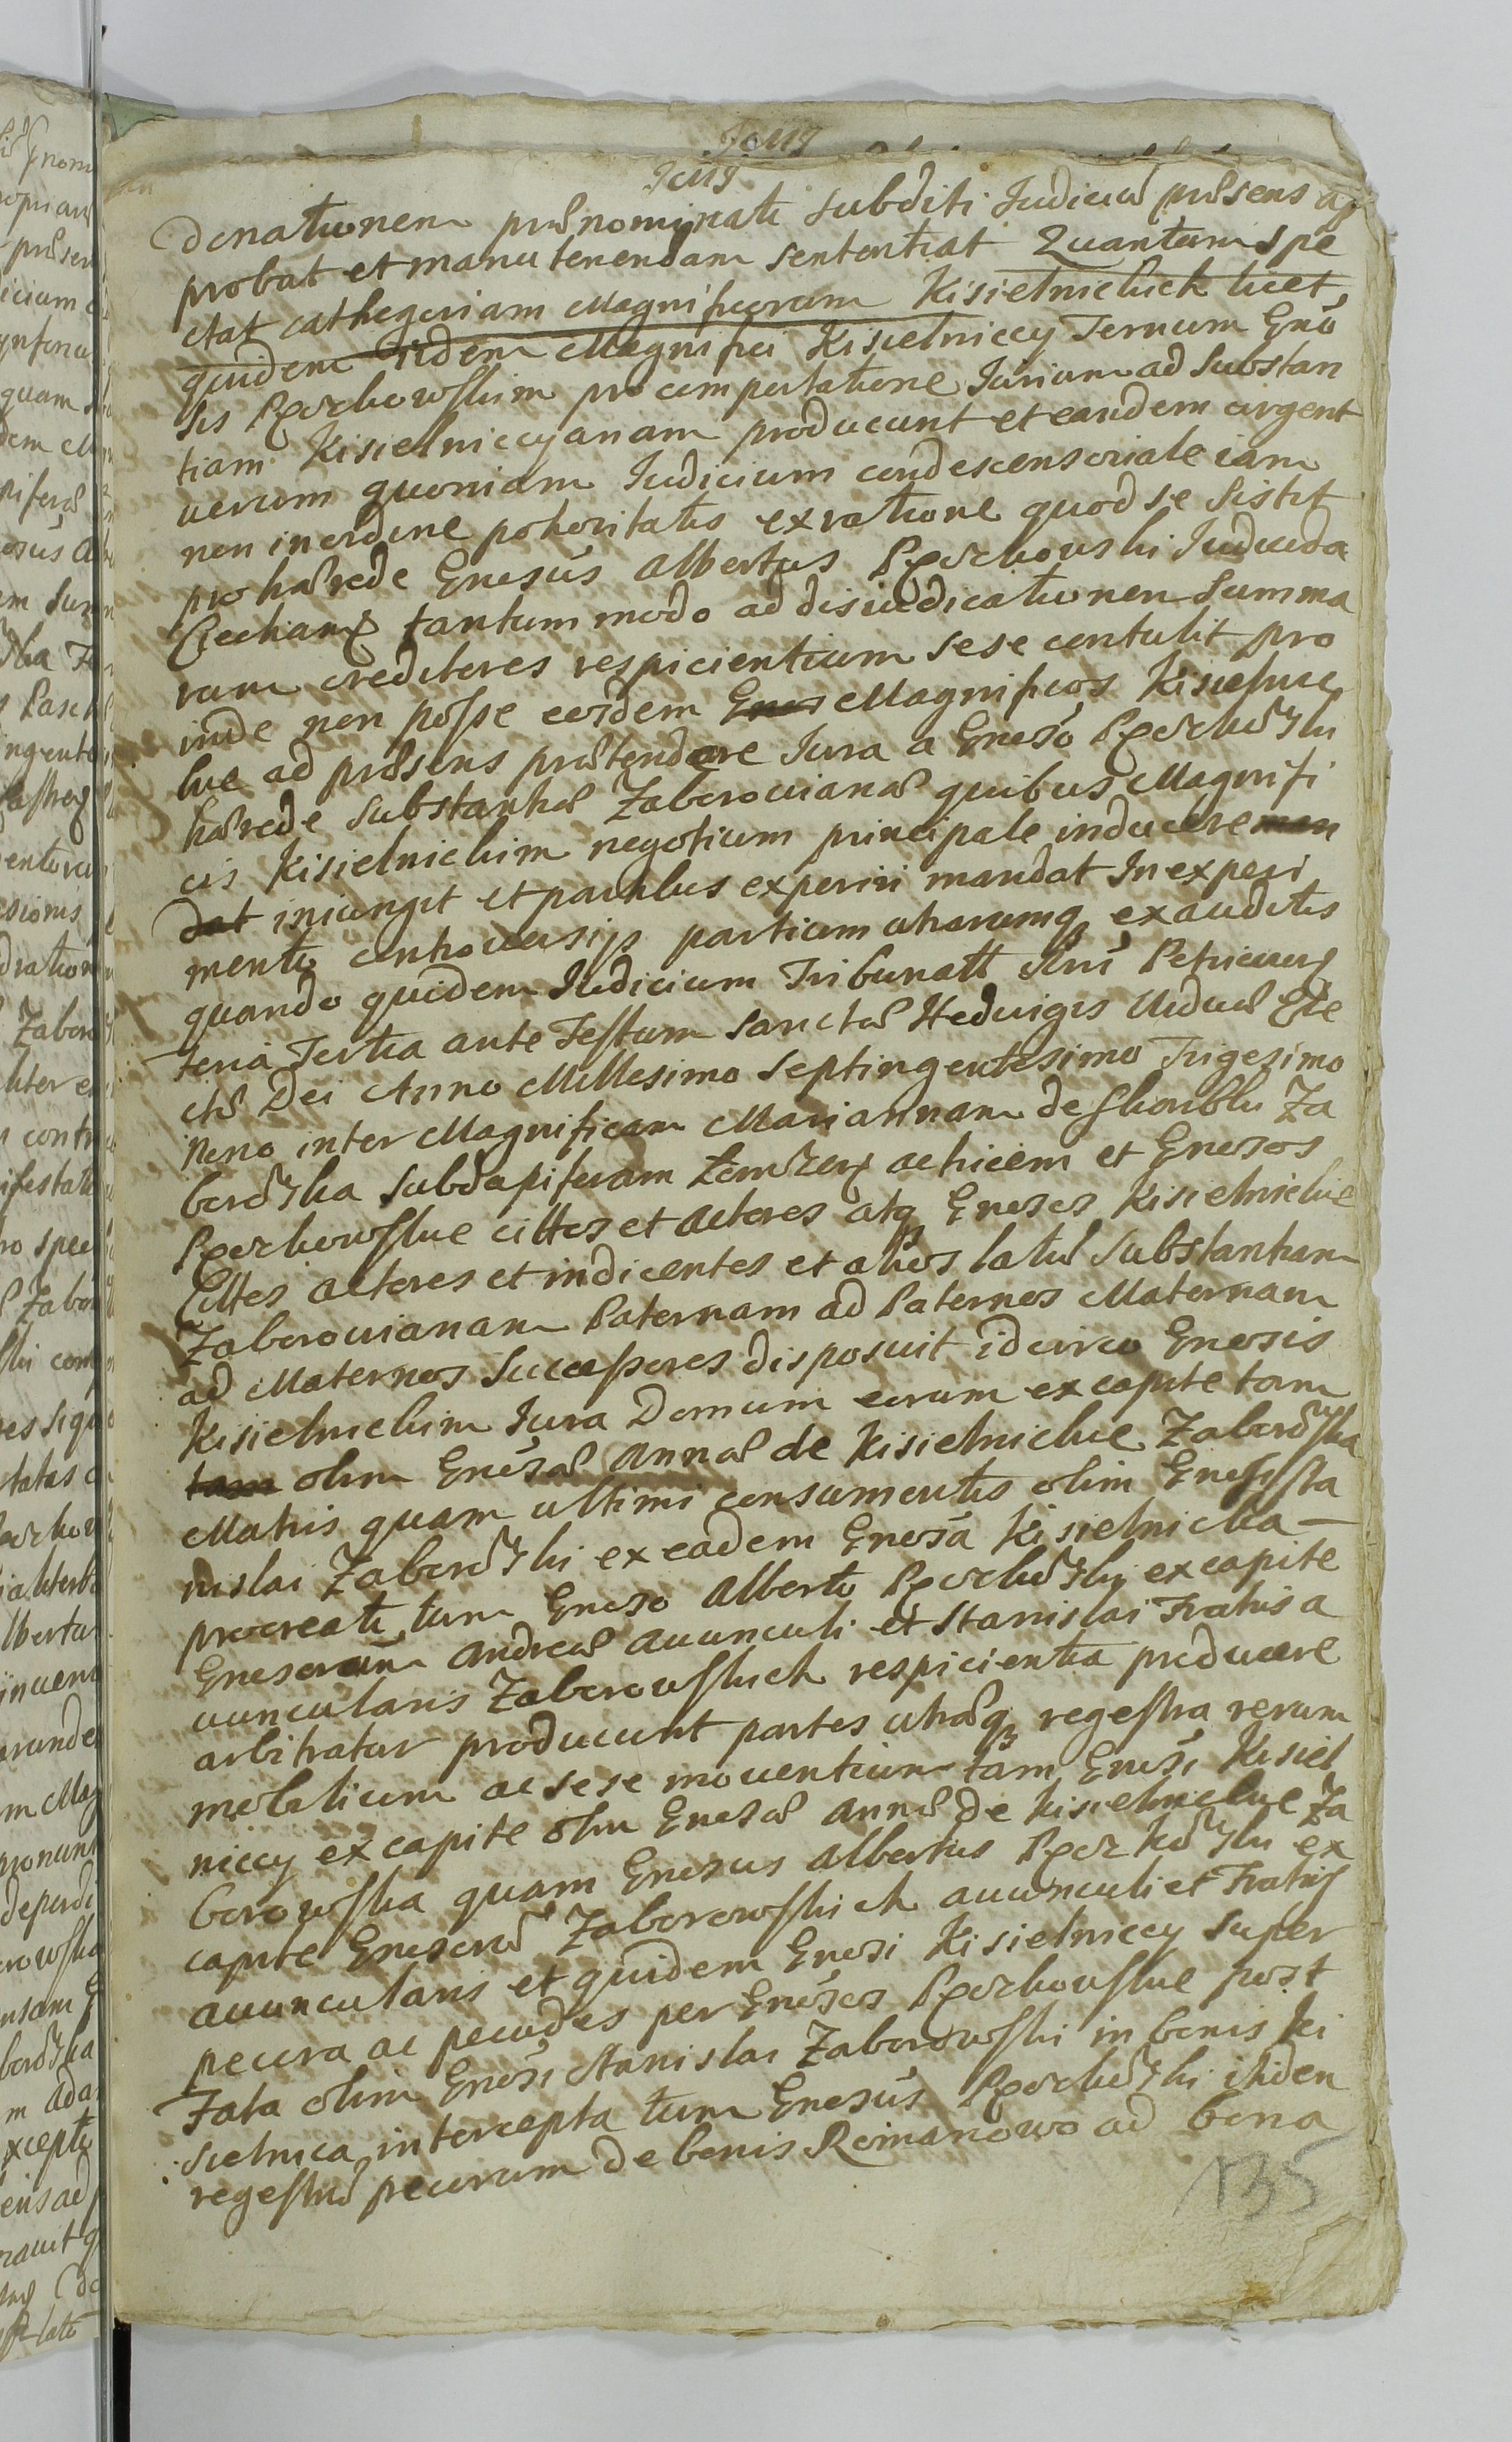 donationem prænominati subditi Judiciũ præsens ap
probat et manutenendam sententiat Quantum spe
ctat cathegoriam Magnificorum Kisielnickich licet
quidem iidem Magnifici Kisielniccy Ternum Gnõ
sis pro comportatione Jurium ad Substan
tiam Kisielniccyanam producunt et eandem urgent
verum quoniam Judicium condescensoriale iam
non in ordine potioritatis ex ratione quod se sistit
pro hærede Gnosus Albertus Judicida
Ciechan tantum modo ad disiudicationem Summa
rum creditores respicientium sese contulit pro
inde non posse eosdem Gnos Magnificos Kisielnic
kie ad præsens prætendere Jura a Gnoso
hærede Substantiæ Zaborovianæ quibus Magnifi
cis Kisielnickim negotium principale inducere man
dat iniungit et partibus experiri mandat In experi
mento controversijs partium utrarumq exauditis
quando quidem Judicium Tribunalt Petricovien
feria Tertia ante Festum Sanctæ Hedvigis Viduæ Ele
ctæ Dei Anno Millesimo Septingentesimo Trigesimo
Nono inter Magnificam Mariannam de Za
borõska Subdapiferam actricem et Gnosos
cittos et actores atq Gnosos Kisielnickie
Cittos actores et indicentes et alios latũ Substantiam
Zaborovianam Paternam ad Paternos Maternam
ad Maternos Successores disposuit idcirco Gnosis
Kisielnickim Jura Domum eorum ex capite tam
tam olim Gnosæ Annæ de Kisielnickie Zaborõska
Matris quam ultimi consumentis olim Gnosi Sta
nislai Zaborõski ex eadem Gnosa Kisielnicka —
procreati tum Gnoso Alberto ex capite
Gnosorum Andreæ Avunculi et Stanislai Fratris a
vuncularis Zaborowskich respicientia producere
arbitratur producunt partes utræq regestra rerum
mobilium ac sese moventium tam Gnosi Kisiel
niccy ex capite olim Gnosæ Annæ de Kisielnickie Za
borowska quam Gnosus Albertus ex
capite Gnosorũ Zaborowskich avunculi et Fratris
avuncularis et quidem Gnosi Kisielniccy super
pecora ac pecudes per Gnosos post
Fata olim Gnosi Stanislai Zaborowski in bonis Ki
sielnica intercepta tum Gnosus itidem
regestrũ pecorum de bonis Romanowo ad bona
135